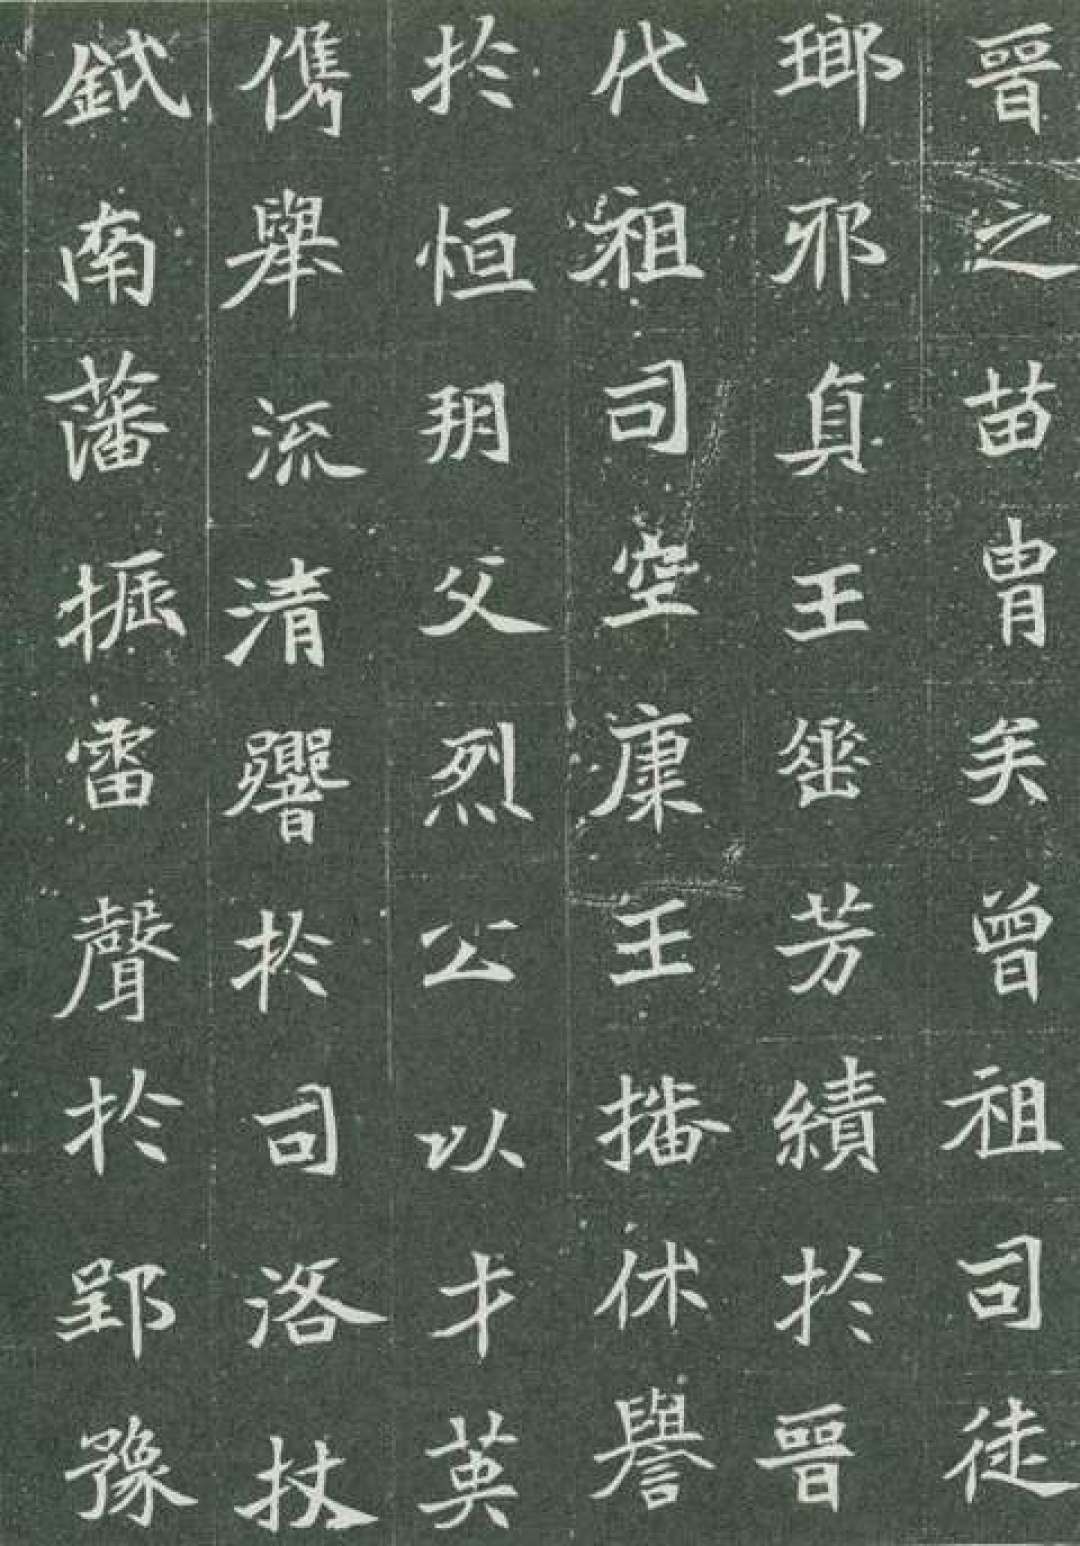 晉之苗胄矣曾祖司徒
瑯邪貞王垂芳績於晉
代祖司空康王播休譽
於恒朔父烈公以才英
儁舉流清響於司洛杖
鉞南藩振雷聲於郢豫